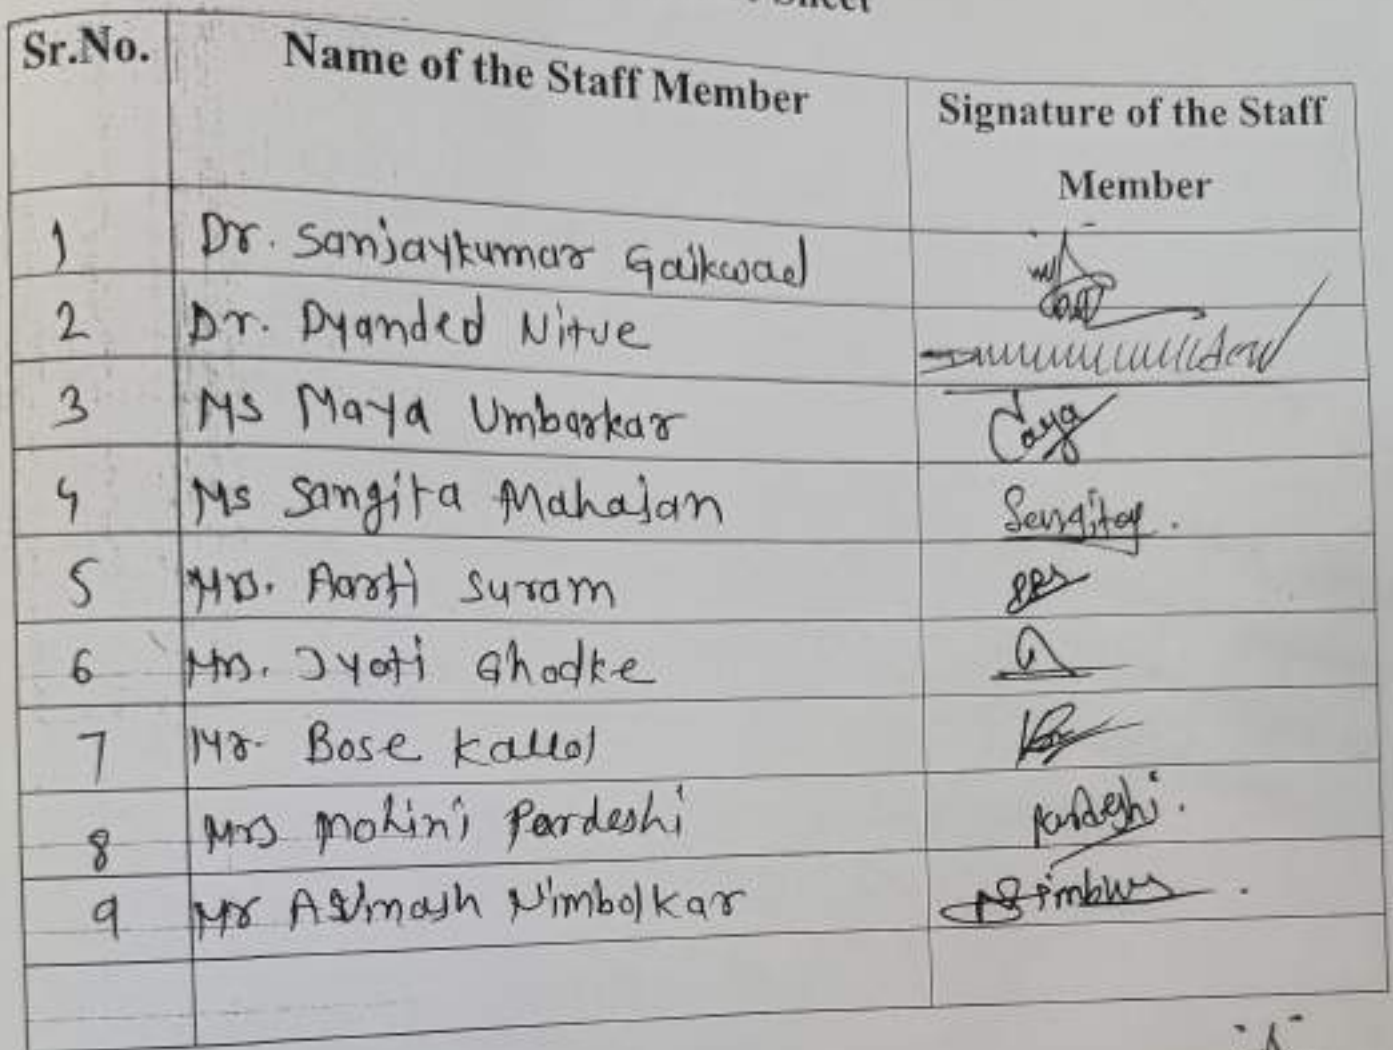 Sheet
Sr.No. Name of the Staff Member Signature of the Staff
Member
1 Dr. Sanjaykumar Gaikwad
2 Dr. Dyanded Nitve
3 Ms Maya Umbarkar
4 Ms Sangita Mahajan Sangita.
5 Mrs. Aarti Suram
6 Mrs. Jyoti Ghodke
7 Mr. Bose Kallol
8 Mrs Mohini Pardeshi Pardeshi.
9 Mr Avinash Nimbolkar